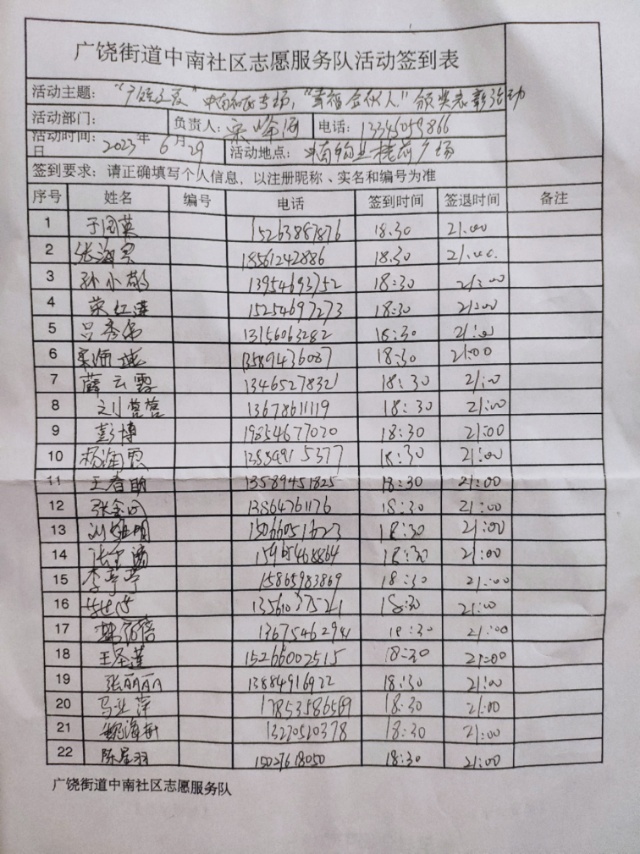 广饶街道中南社区志愿服务队活动签到表
活动主题：“广饶之夏”中南社区专场，“幸福合伙人”颁奖表彰活动
活动部门： 负责人： 电话：13346059866
活动时间：2023年6月29日 活动地点：广场
签到要求：请正确填写个人信息，以注册昵称、实名和编号为准
序号 姓名 编号 电话 签到时间 签退时间 备注
1 于国英 15263887876 18:30 21:00
2 18561242886 18:30 21:00
3 孙小敏 13954693752 18:30 21:00
4 荣红莲 15254697273 18:30 21:00
5 吕秀伟 13156063282 18:30 21:00
6 13589436087 18:30 21:00
7 薛云霞 13465278321 18:30 21:00
8 刘营营 13678611119 18:30 21:00
9 彭博 19854677070 18:30 21:00
10 杨海霞 5377 18:30 21:00
11 王春明 13589451825 18:30 21:00
12 张金同 13864761176 18:30 21:00
13 15066051623 18:30 21:00
14 18:30 21:00
15 李苹苹 15865983869 18:30 21:00
16 13561037521 18:30 21:00
17 13675462941 18:30 21:00
18 王圣莲 15266002515 18:30 21:00
19 张丽丽 13884916922 18:30 21:00
20 马业萍 17853586569 18:30 21:00
21 13270510378 18:30 21:00
22 陈星羽 15027618050 18:30 21:00
广饶街道中南社区志愿服务队